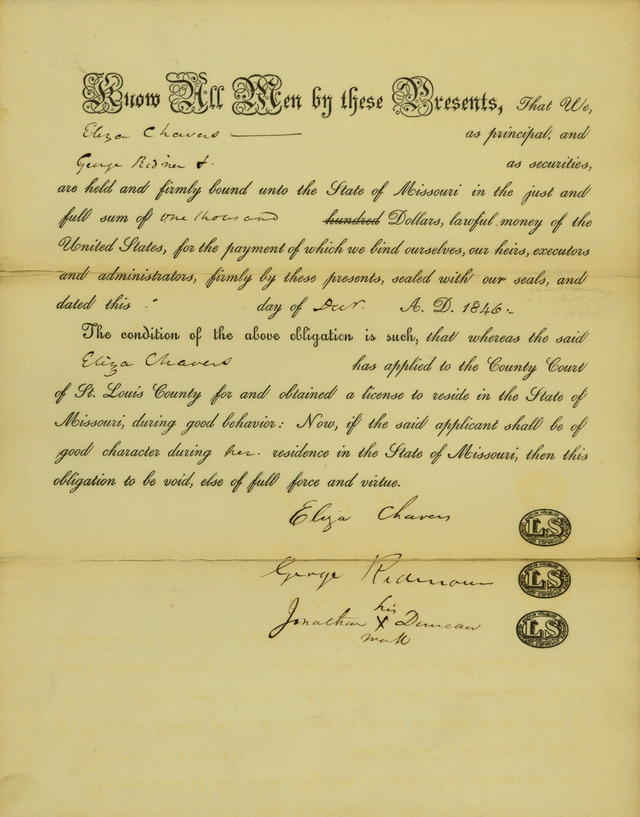 Know All Men by these Presents, That We,
Eliza Chavers as principal, and
George as securities,
are held and firmly bound unto the State of Missouri in the just and
full sum of one thousand hundred Dollars, lawful money of the
United States, for the payment of which we bind ourselves, our heirs, executors
and administrators, firmly by these presents, sealed with our seals, and
dated this day of A. D. 1846.
The condition of the above obligation is such, that whereas the said
Eliza Chavers has applied to the County Court
of St. Louis County for and obtained a license to reside in the State of
Missouri, during good behavior: Now, if the said applicant shall be of
good character during her. residence in the State of Missouri, then this
obligation to be void, else of full force and virtue.
Eliza Chavers LS
George Ridenour LS
his
Jonathan X Duncan LS
mark